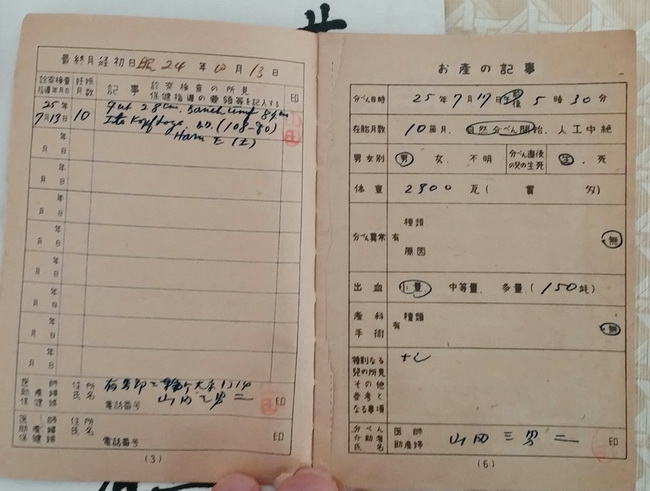 最終月経初日 昭24年10月13日
診察検査指導年月日 妊娠月数 記事 診察検査の所見 保健指導の要領等を記入する 印
25年 7月13日 10
(108-80)
Harn E (±)
年 月 日
年 月 日
年 月 日
年 月 日
年 月 日
年 月 日
年 月 日
医師 助産婦 保健婦 住所 氏名 電話番号 山田三男二 印
医師 助産婦 保健婦 住所 氏名 電話番号 印
(3)
お産の記事
分べん日時 25年7月17日 午前 後 5時30分
在胎月数 10箇月、自然分べん開始、人工中絶
男女別 男 女、不明 分べん直後の児の生死 生、死
体重 2900瓦( 貫 匁)
分べん異常 有 種類 原因 無
出血 小量、中等量、多量(150竓)
産科手術 有 種類 無
特別なる児の所見その他参考となる事項 なし
分べん介助者氏名 医師 助産婦 山田三男二 印
(6)